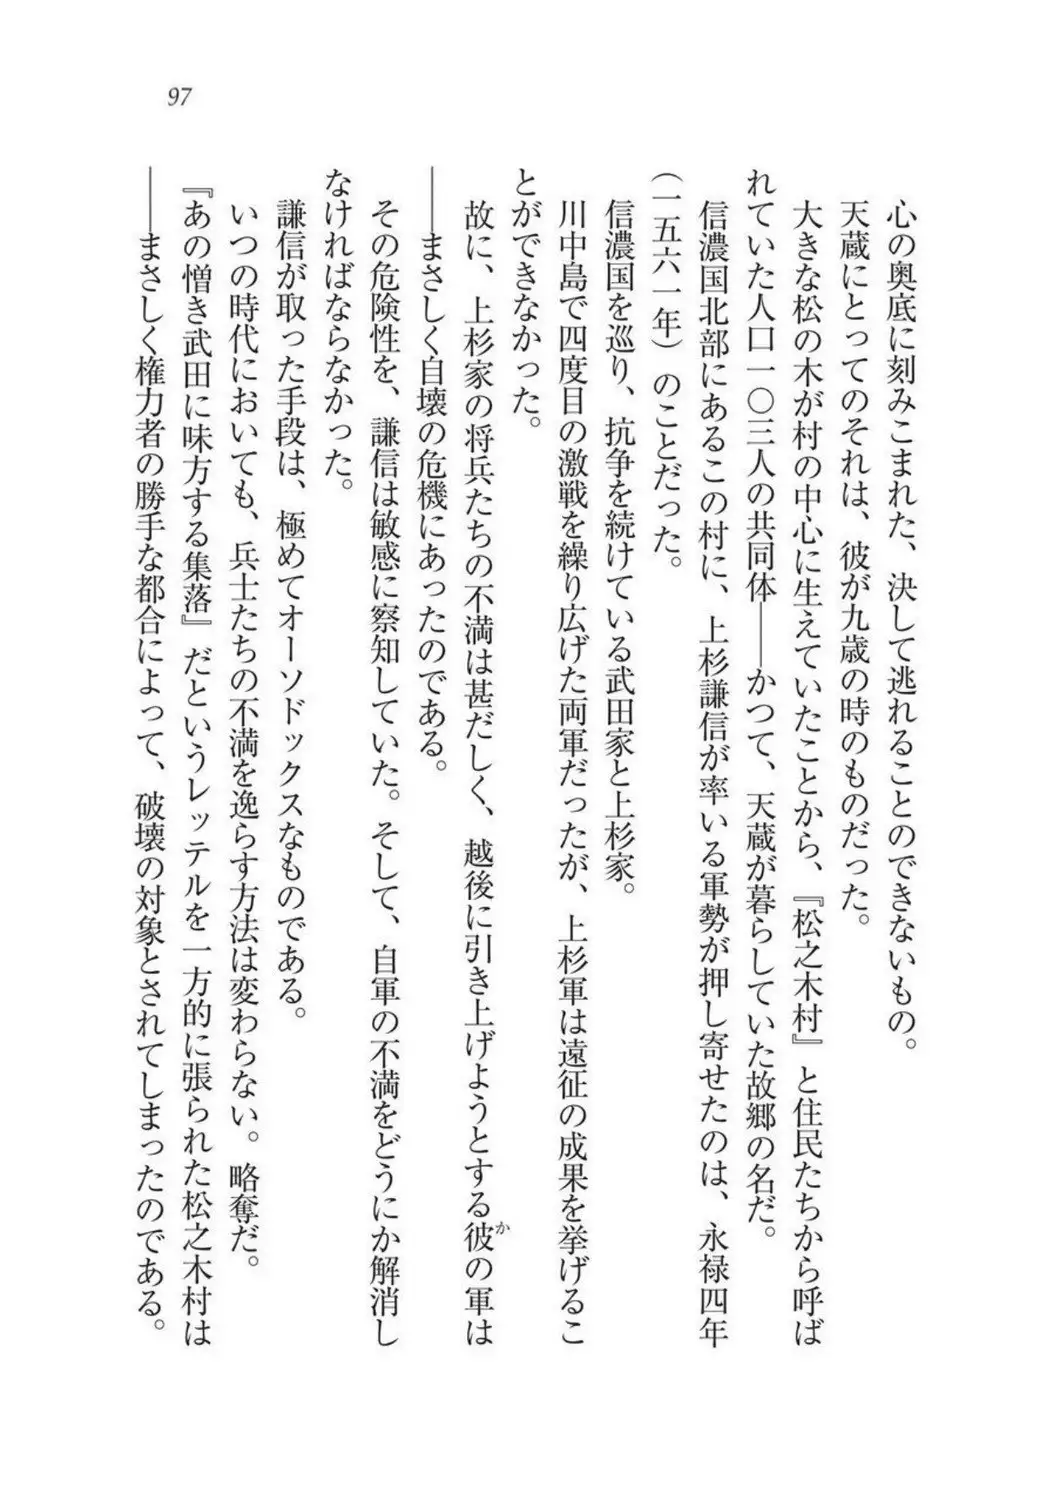 97
心の奥底に刻みこまれた、決して逃れることのできないもの。
天蔵にとってのそれは、彼が九歳の時のものだった。
大きな松の木が村の中心に生えていたことから、『松之木村』と住民たちから呼ば
れていた人口一〇三人の共同体――かつて、天蔵が暮らしていた故郷の名だ。
信濃国北部にあるこの村に、上杉謙信が率いる軍勢が押し寄せたのは、永禄四年
（一五六一年）のことだった。
信濃国を巡り、抗争を続けている武田家と上杉家。
川中島で四度目の激戦を繰り広げた両軍だったが、上杉軍は遠征の成果を挙げるこ
とができなかった。
故に、上杉家の将兵たちの不満は甚だしく、越後に引き上げようとする彼の軍は
か
――まさしく自壊の危機にあったのである。
その危険性を、謙信は敏感に察知していた。そして、自軍の不満をどうにか解消し
なければならなかった。
謙信が取った手段は、極めてオーソドックスなものである。
いつの時代においても、兵士たちの不満を逸らす方法は変わらない。略奪だ。
『あの憎き武田に味方する集落』だというレッテルを一方的に張られた松之木村は
――まさしく権力者の勝手な都合によって、破壊の対象とされてしまったのである。